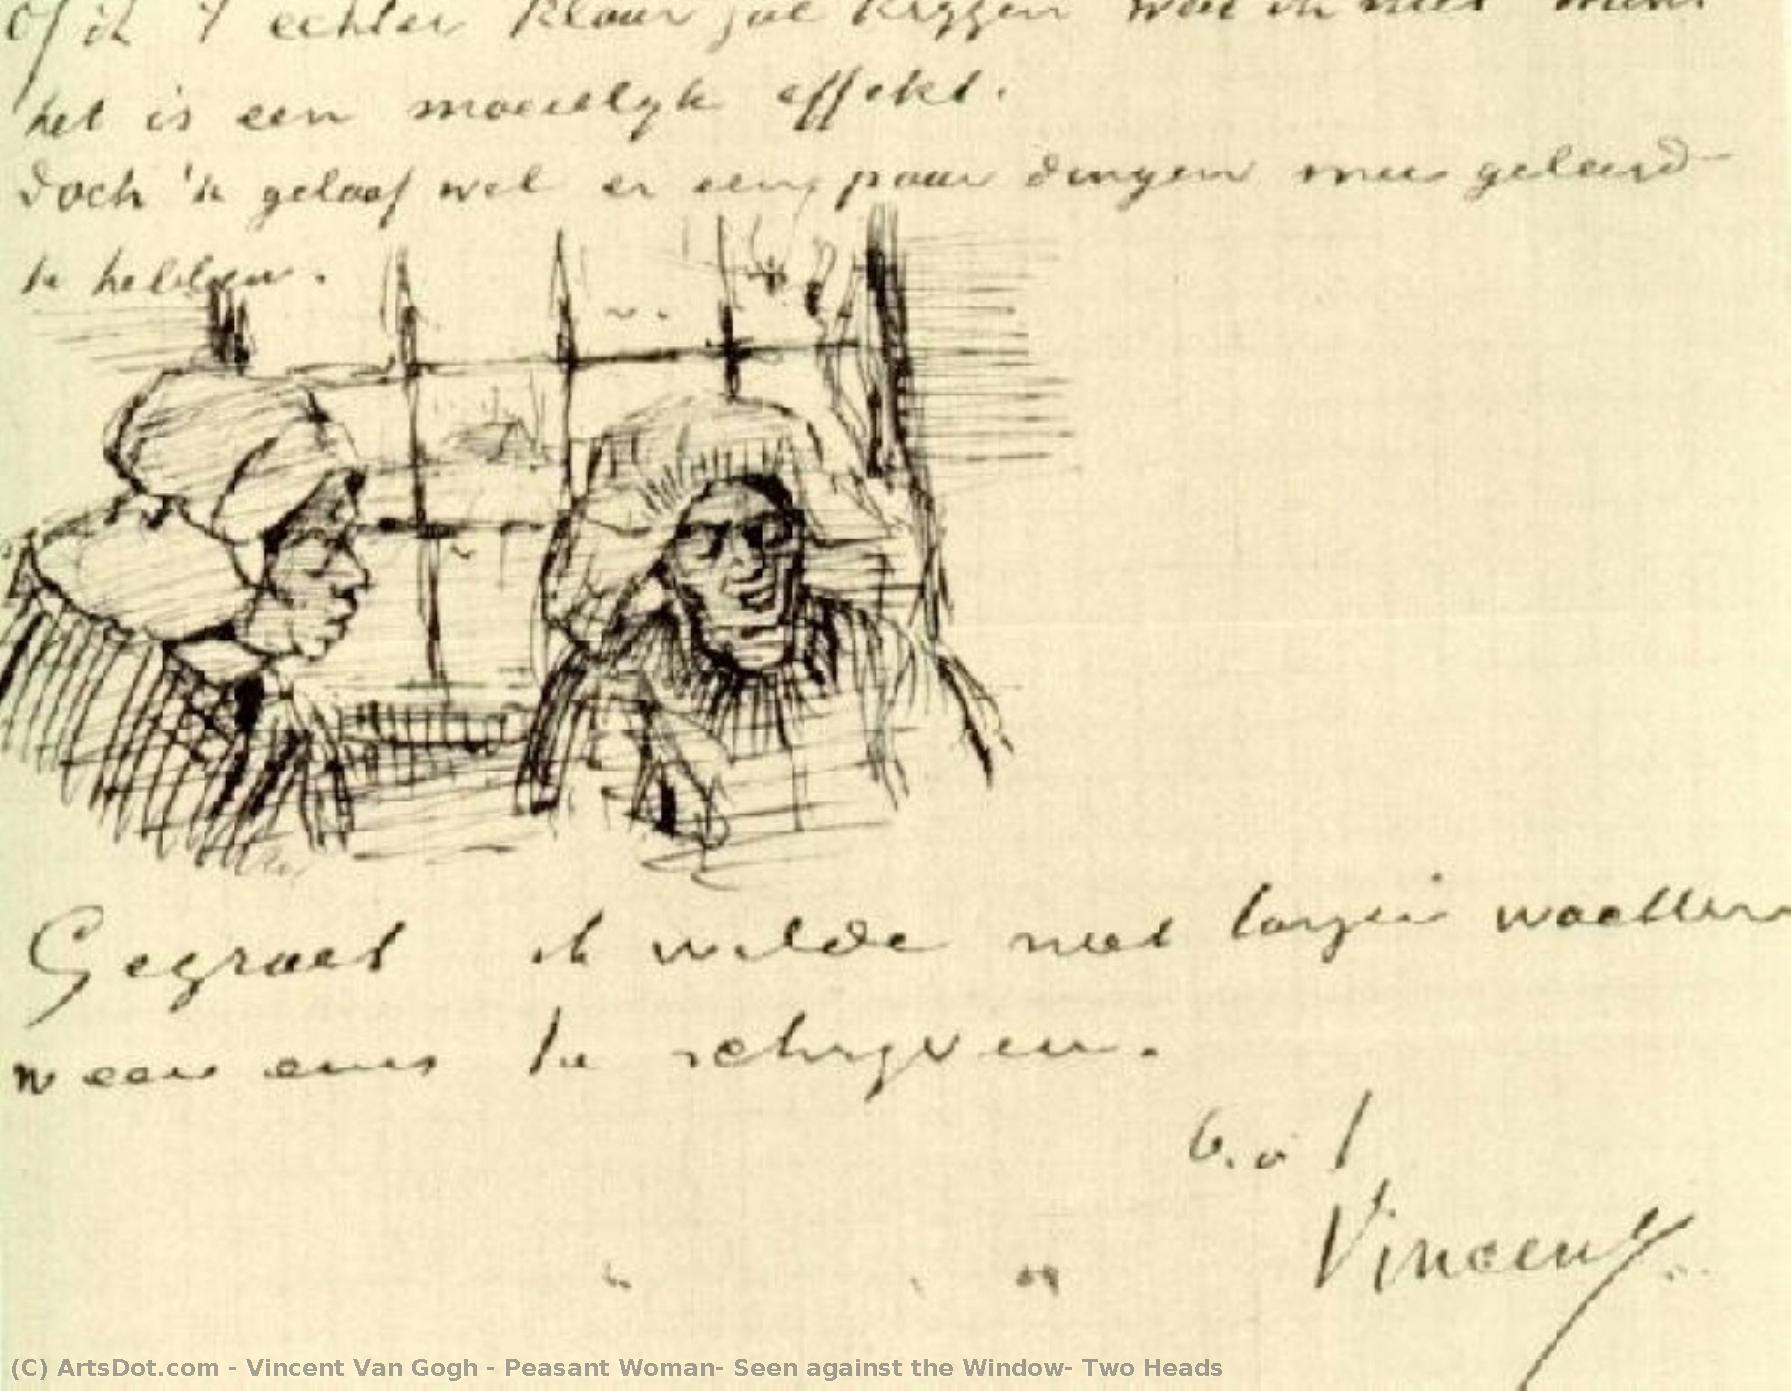 Of ik 't echter klaar zal krijgen weet ik niet want
het is een moeielijk effekt.
Doch 'k geloof wel er een paar dingen mee geleerd
te hebben.
Gegroet ik wilde niet langer wachten
weer eens te schrijven.
b.à.t.
Vincent
(C) ArtsDot.com - Vincent Van Gogh - Peasant Woman- Seen against the Window- Two Heads